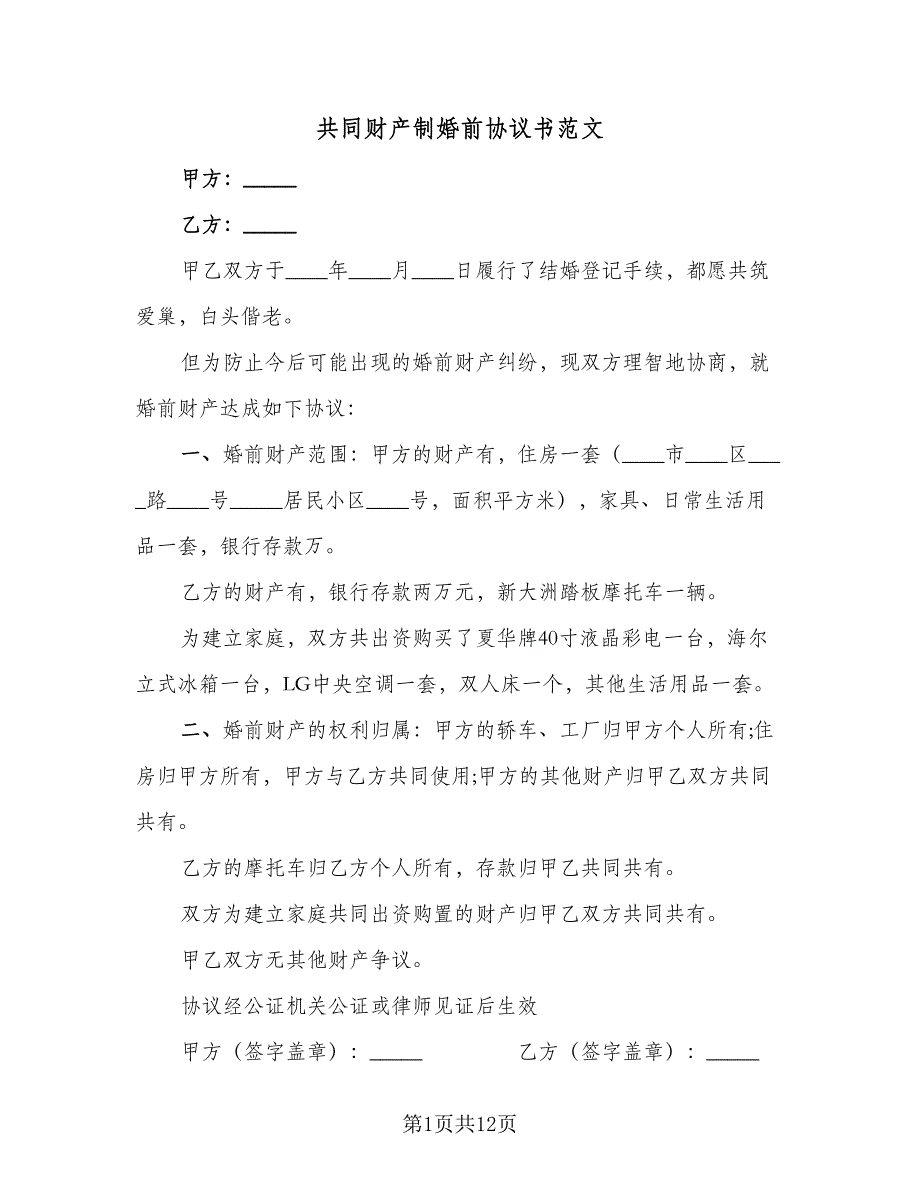 共同财产制婚前协议书范文
甲方：_____
乙方：_____
甲乙双方于____年____月____日履行了结婚登记手续，都愿共筑
爱巢，白头偕老。
但为防止今后可能出现的婚前财产纠纷，现双方理智地协商，就
婚前财产达成如下协议：
一、婚前财产范围：甲方的财产有，住房一套（____市____区___
_路____号_____居民小区____号，面积平方米），家具、日常生活用
品一套，银行存款万。
乙方的财产有，银行存款两万元，新大洲踏板摩托车一辆。
为建立家庭，双方共出资购买了夏华牌40寸液晶彩电一台，海尔
立式冰箱一台，LG中央空调一套，双人床一个，其他生活用品一套。
二、婚前财产的权利归属：甲方的轿车、工厂归甲方个人所有;住
房归甲方所有，甲方与乙方共同使用;甲方的其他财产归甲乙双方共同
共有。
乙方的摩托车归乙方个人所有，存款归甲乙共同共有。
双方为建立家庭共同出资购置的财产归甲乙双方共同共有。
甲乙双方无其他财产争议。
协议经公证机关公证或律师见证后生效
甲方（签字盖章）：_____ 乙方（签字盖章）：_____
第1页共12页